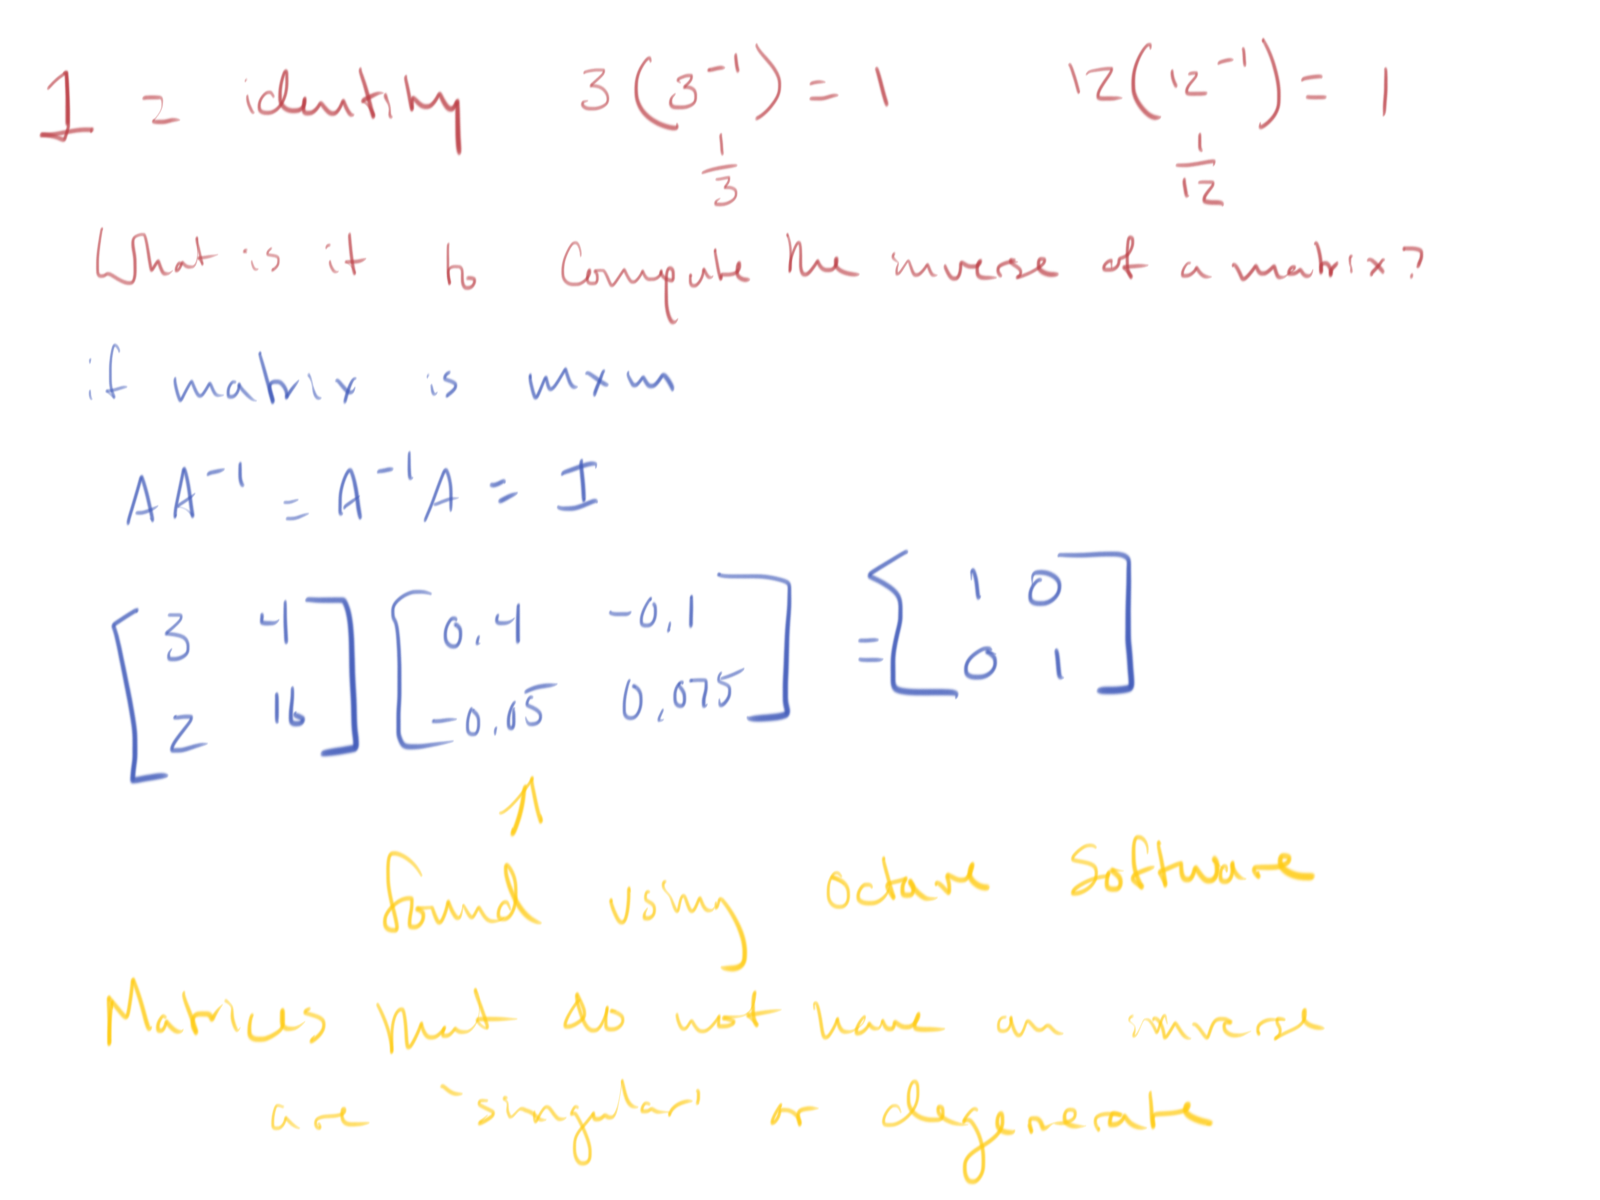 1 = identity 3(3⁻¹) = 1 12(12⁻¹) = 1
1/3 1/12
What is it to compute the inverse of a matrix?
if matrix is m x m
AA⁻¹ = A⁻¹A = I
[3 4 [0.4 -0.1 = [1 0
2 16] -0.05 0.075] 0 1]
found using octave software
Matrices that do not have an inverse
are 'singular' or degenerate